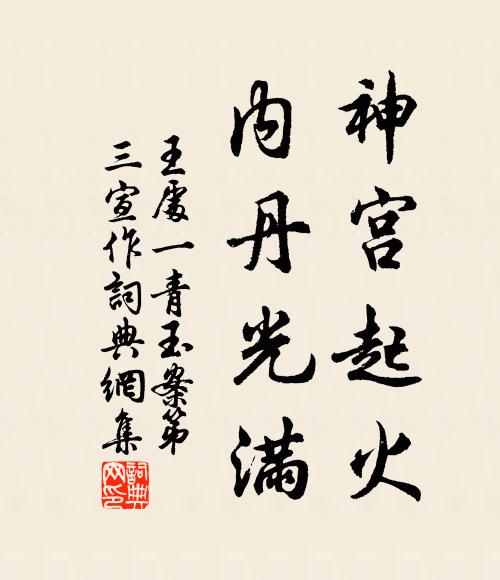 神宫起火
内丹光滿
王處一青玉案第
三宣作詞典網集
詞典
网印